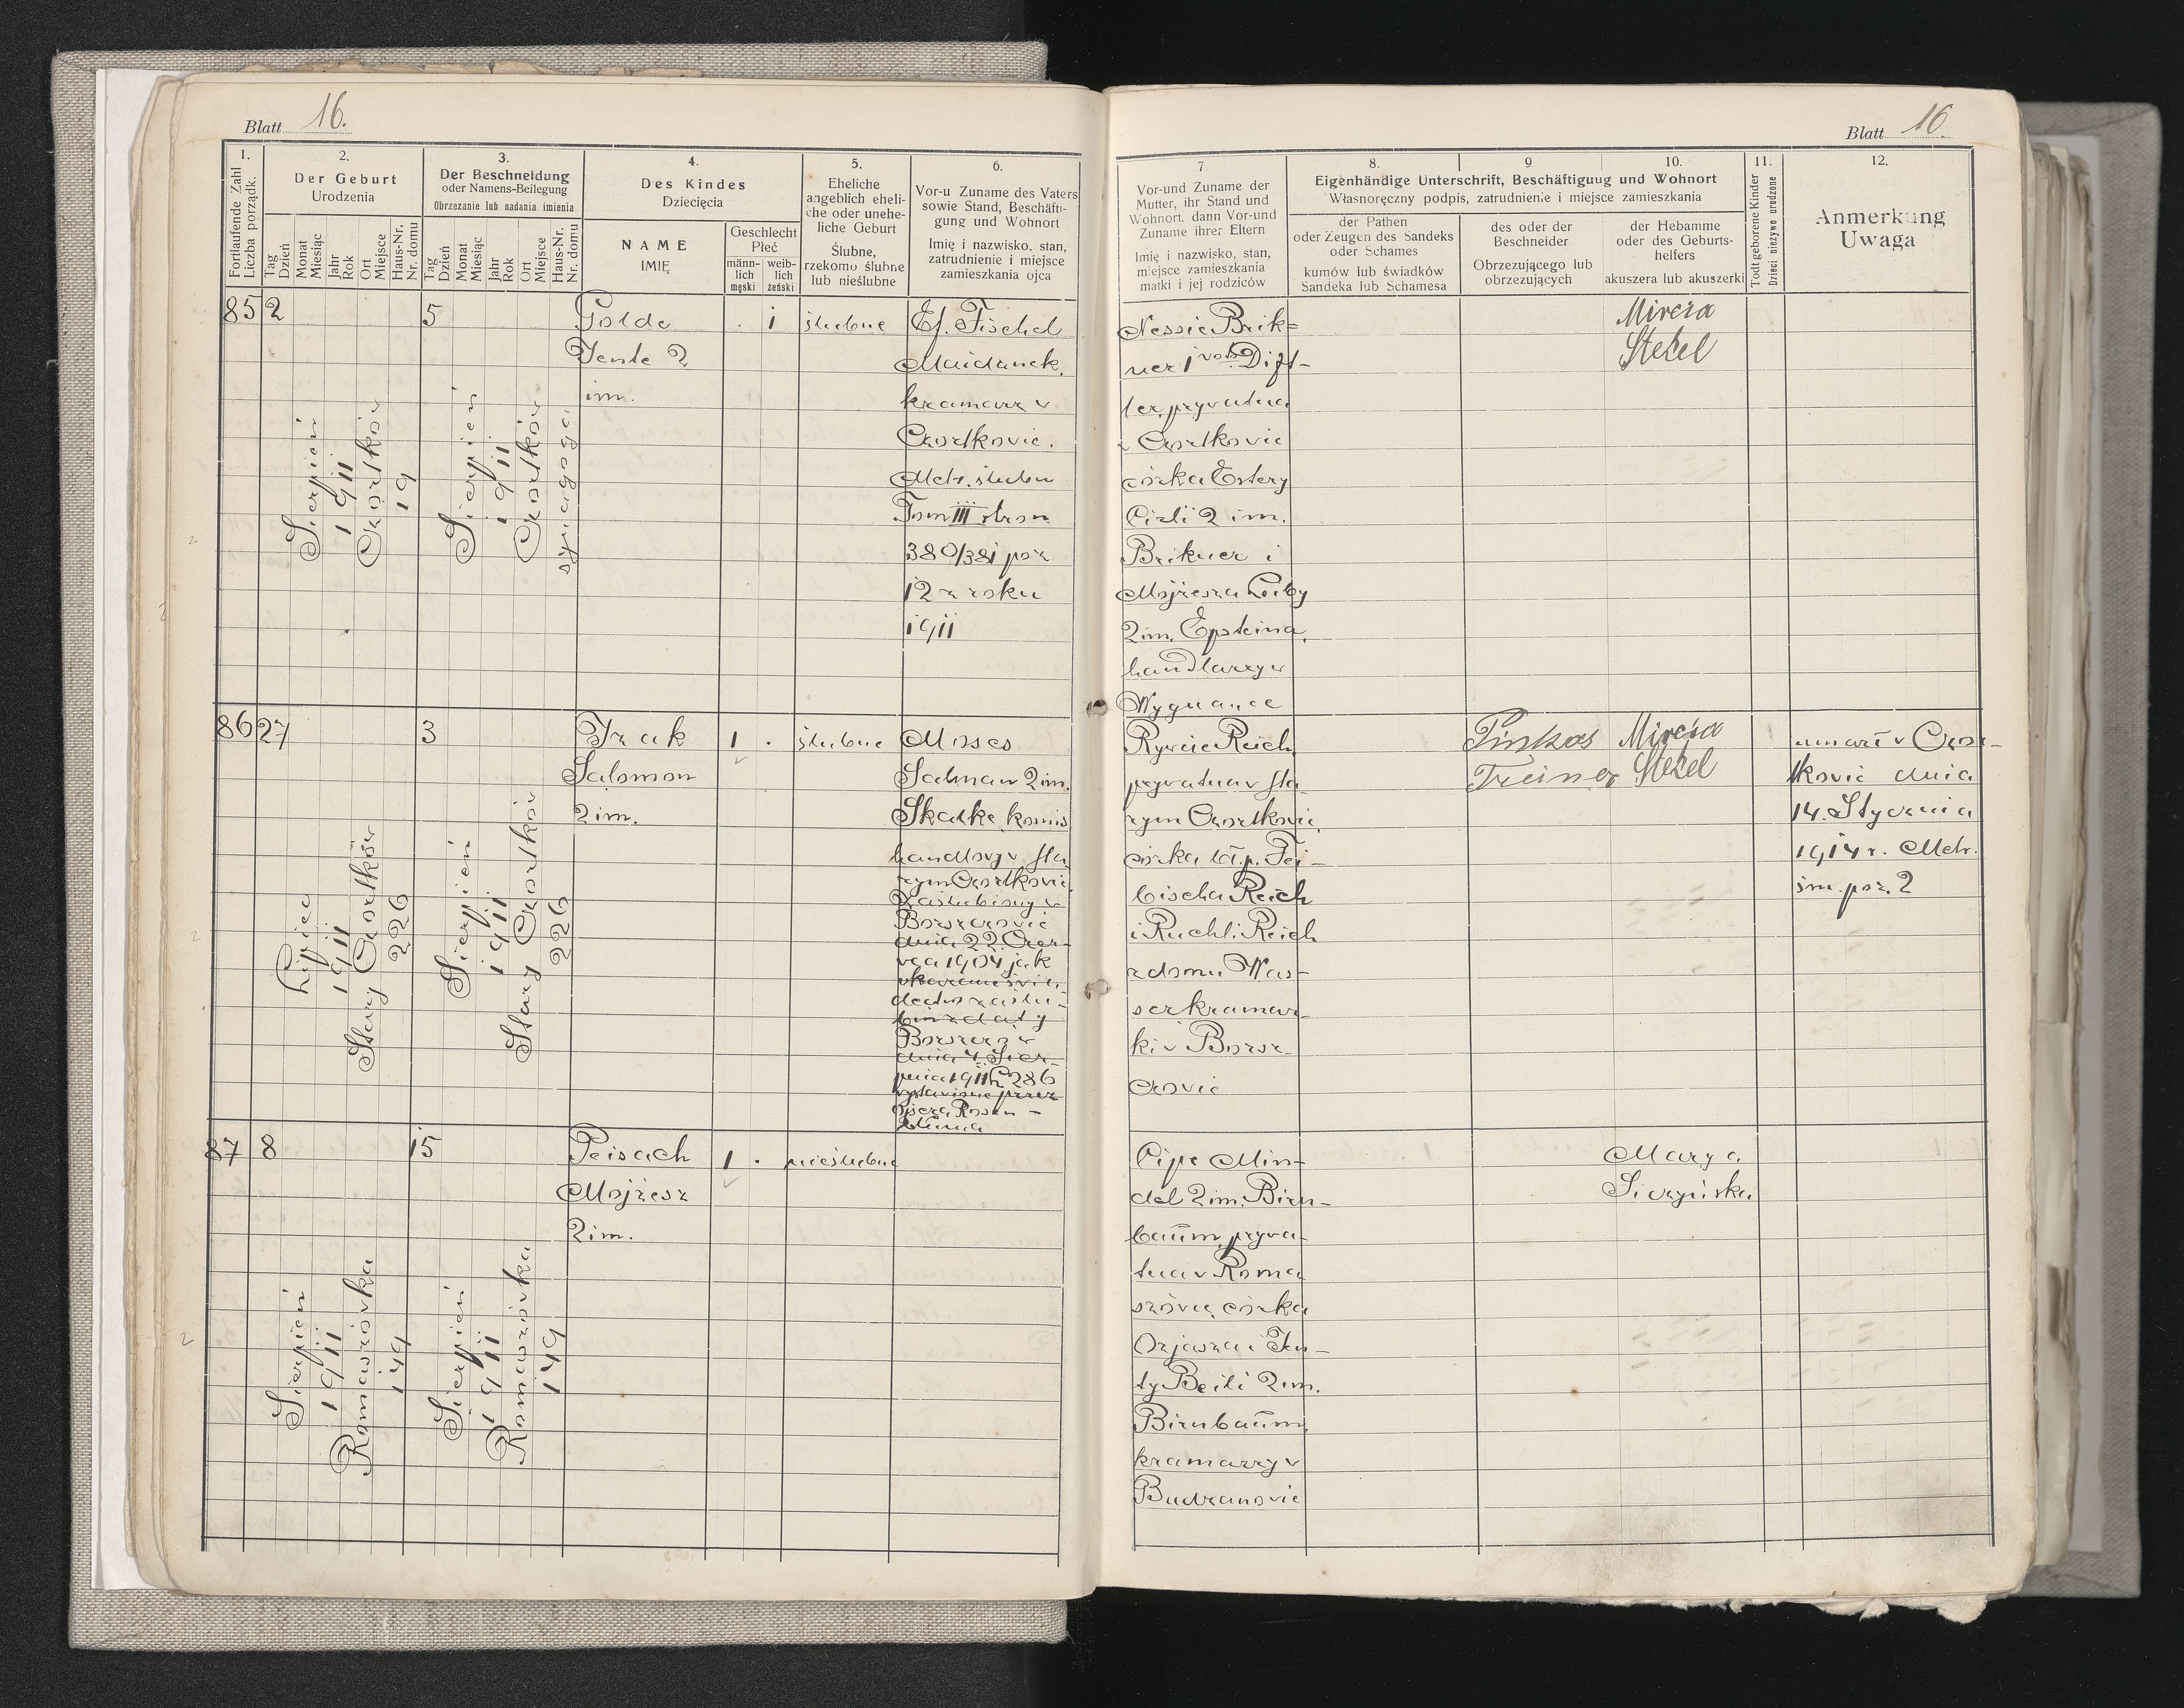 Blatt 16.
1.
Fortlaufende Zahl
Liczba porządk.
2.
Der Geburt
Urodzenia
Tag
Dzień
Monat
Miesiąc
Jahr
Rok
Ort
Miejsce
Haus-Nr.
Nr. domu
3.
Der Beschneidung
oder Namens-Beilegung
Obrzezanie lub nadania imienia
Tag
Dzień
Monat
Miesiąc
Jahr
Rok
Ort
Miejsce
Haus-Nr.
Nr. domu
4.
Des Kindes
Dziecięcia
NAME
IMIĘ
Geschlecht
Płeć
männ-
lich
męski
weib-
lich
żeński
5.
Eheliche
angeblich eheli-
che oder unehe-
liche Geburt
Ślubne,
rzekomo ślubne
lub nieślubne
6.
Vor-u Zuname des Vaters
sowie Stand, Beschäfti-
gung und Wohnort
Imię i nazwisko, stan,
zatrudnienie i miejsce
zamieszkania ojca
85
2
Sierpień
1911
Czortków
19
5
Sierpień
1911
Czortków
synagoga
Golde
Jente 2
im.
. 1
ślubne
Ef. Fischel
Maidanek,
kramarz w
Czortkowie.
Metr. ślubu
Tom III stron
380/381 poz
12 z roku
1911
86
27
Lipiec
1911
Stary Czortków
226
3
Sierpień
1911
Stary Czortków
226
Izak
Salomon
2 im.
1 .
ślubne
Moses
Salman 2 im.
Skalke, komis
handlowy w Sta
rym Czortkowie,
Zaślubiony w
Borszczowie
dnia 22 Czer-
wca 1904 jak
dectwo zaślu-
Borszczów
dnia 4 Sier-
pnia 1911 L 286
87
8
Sierpień
1911
Romaszówka
149
15
Sierpień
1911
Romaszówka
149
Peisach
Mojżesz
2 im.
1 .
nieślubne
Blatt 16.
7
Vor-und Zuname der
Mutter, ihr Stand und
Wohnort, dann Vor-und
Zuname ihrer Eltern
Imię i nazwisko, stan,
miejsce zamieszkania
matki i jej rodziców
8.
9
10.
Eigenhändige Unterschrift, Beschäftigung und Wohnort
Własnoręczny podpis, zatrudnienie i miejsce zamieszkania
der Pathen
oder Zeugen des Sandeks
oder Schames
kumów lub świadków
Sandeka lub Schamesa
des oder der
Beschneider
Obrzezującego lub
obrzezujących
der Hebamme
oder des Geburts-
helfers
akuszera lub akuszerki
11.
Todt geborene Kinder
Dzieci nieżywo urodzone
12.
Anmerkung
Uwaga
Nessie Brik=
ner 1 voto Dift-
ler, prywatna
w Czortkowie
córka Estery
Cirli 2 im.
Brikner i
Mojżesza Leiby
2 im. Epsteina,
handlarzy w
Wygnance
Mircia
Stekel
Rywcie Reich
prywatna w Sta-
rym Czortkowie,
córka bł. p. Fei-
bischa Reich
i Ruchli Reich
z domu Was-
ser kramar-
ki w Borsz-
czowie
Pinkas
Treiner
Mircia
Stekel
umarł w Czor-
tkowie dnia
14. Stycznia
1914 r. Metr.
śm. poz. 2
Cipe Min-
del 2 im. Birn-
baum, prywa-
tna w Roma
szówce, córka
Ozjasza i Jen-
ty Beili 2 im.
Birnbaum,
kramarzy w
Budzanowie
Marya